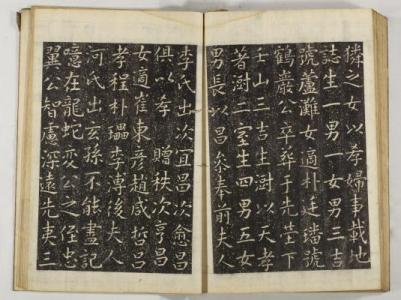 隣之女以孝婦事載地
誌生一男一女男三吉
號蘆灘女適朴廷璠號
鶴巖公卒葬于先塋下
壬山三吉生澍以天孝
著澍二室生四男五女
男長以昌參奉前夫人
李氏出次宜昌次愈昌
俱以孝贈秩次亨昌
女適崔東彦趙咸哲呂
孝程朴瓃李漙後夫人
河氏出玄孫不能盡記
噫在龍蛇変公之侄忠
翼公智慮深遠先夷三